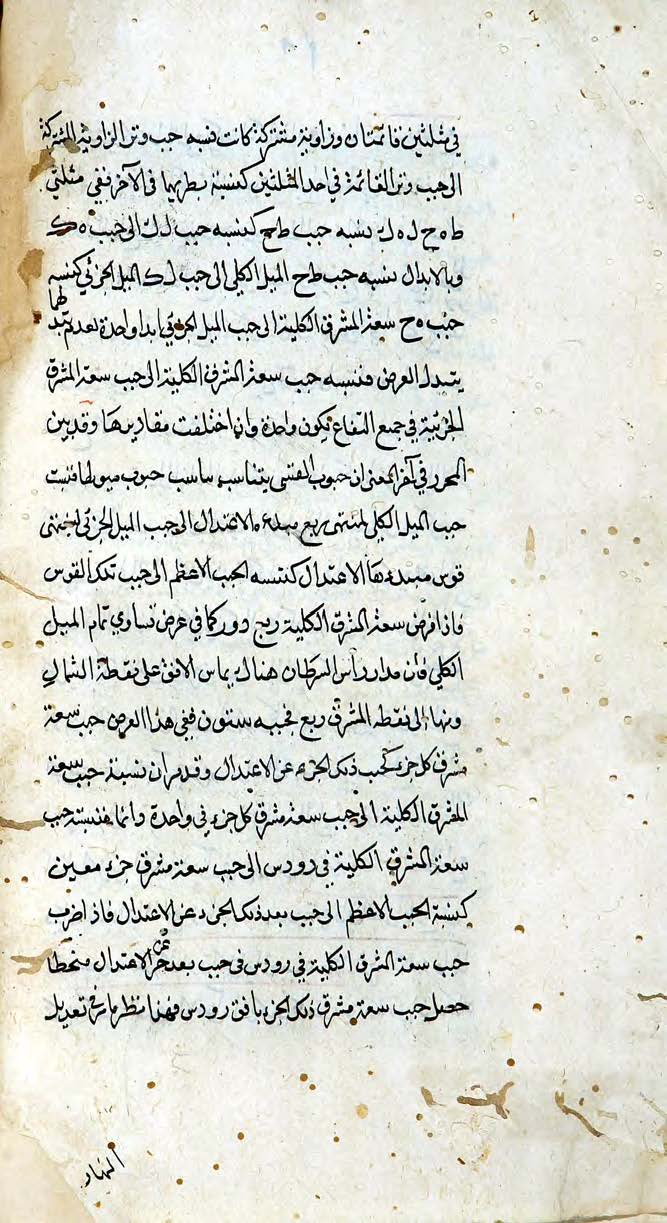 في مثلثين قائمتان وزاوية مشتركة كانت نسبة جيب وتر الزاوية المشتركة
الى جيب وتر القائمة في احد المثلثين كنسبة نظيريهما في الآخر ففي مثلثي
ط ه ح ل ه ك نسبه جيب طح كنسبه جيب ل ك الى جيب ه ك
وبالابدال نسبه جيب طح الميل الكلي الى جيب ل ك الميل الجزئي كنسبه
جيب ه ح سعة المشرق الكلية الى جيب الميل الجزئي ابدا واحدة لعدم تبدلهما
يتبدل العرض فنسبه جيب سعة المشرق الكلية الى جيب سعة المشرق
الجزئية في جميع البقاع تكون واحدة وان اختلفت مقاديرها وقد بين
المحرر في آخر المعنى ان جيوب القسى يتناسب جيوب ميولها فنسبت
جيب الميل الكلي لمنتهى ربع مبدءه الاعتدال الى جيب الميل الجزئي لمنتهى
قوس مبدءها الاعتدال كنسبه الجيب الاعظم الى جيب تلك القوس
فاذا فرض سعة المشرق الكلية ربع دور كما في عرض تساوي تمام الميل
الكلي فان مدار رأس السرطان هناك يماس الافق على نقطة الشمال
ومنها الى نقطه المشرق ربع فجيبه ستون ففي هذا العرض جيب سعة
مشرق كل جزء كجيب ذلك الجزء عن الاعتدال وقد مر ان نسبة جيب سعة
المشرق الكلية الى جيب سعة مشرق كل جزء في واحدة دائما فنسبة جيب
سعة المشرق الكلية في رودس الى جيب سعة مشرق جزء معين
كنسبة الجيب الاعظم الى جيب بعد ذلك الجزء عن الاعتدال فاذا ضرب
جيب سعة المشرق الكلية في رودس في جيب بعد جزء عن الاعتدال منحطا
حصل جيب سعة مشرق ذلك الجزء بافق رودس فهنا نظر ما مر في تعديل
النهار